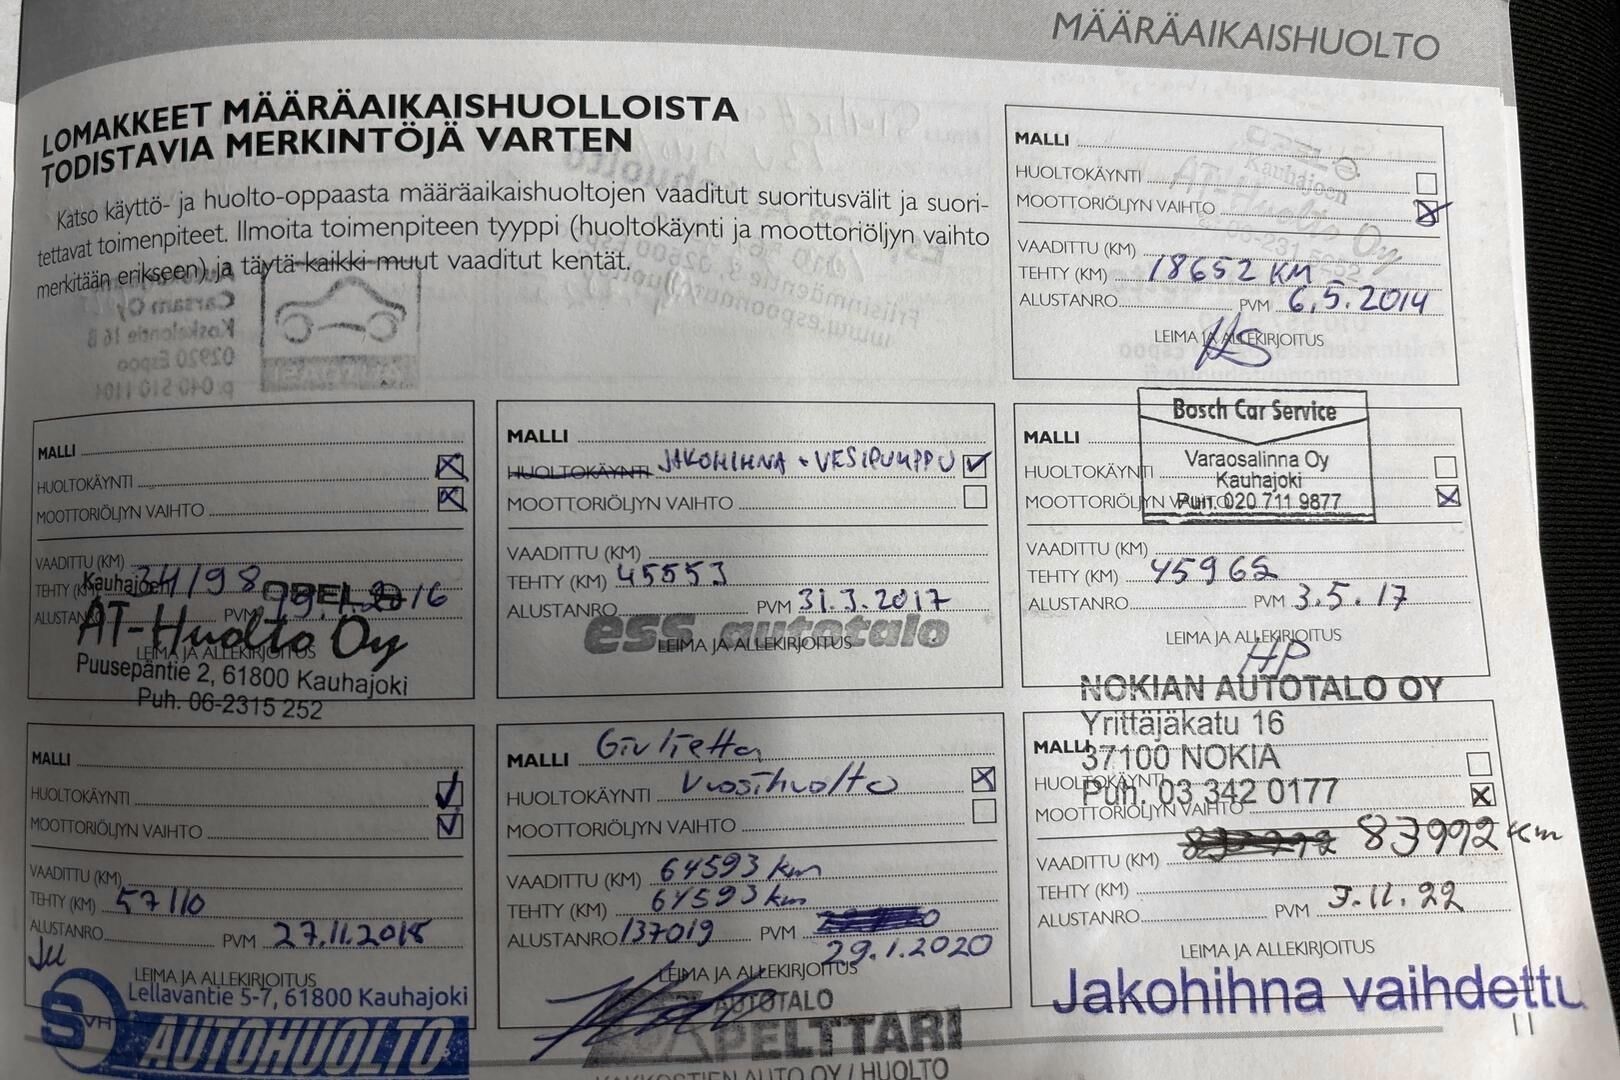 MÄÄRÄAIKAISHUOLTO
LOMAKKEET MÄÄRÄAIKAISHUOLLOISTA
TODISTAVIA MERKINTÖJÄ VARTEN
Katso käyttö- ja huolto-oppaasta määräaikaishuoltojen vaaditut suoritusvälit ja suori-
tettavat toimenpiteet. Ilmoita toimenpiteen tyyppi (huoltokäynti ja moottoriöljyn vaihto
merkitään erikseen) ja täytä kaikki muut vaaditut kentät.
MALLI
HUOLTOKÄYNTI
MOOTTORIÖLJYN VAIHTO
VAADITTU (KM)
TEHTY (KM) 18652 KM
ALUSTANRO PVM 6.5.2014
LEIMA JA ALLEKIRJOITUS
MALLI
HUOLTOKÄYNTI
MOOTTORIÖLJYN VAIHTO
VAADITTU (KM)
TEHTY (KM) 34198
ALUSTANRO PVM 19.1.2016
LEIMA JA ALLEKIRJOITUS
Kauhajoen OPEL
AT-Huolto Oy
Puusepäntie 2, 61800 Kauhajoki
Puh. 06-2315 252
MALLI
HUOLTOKÄYNTI JAKOHIHNA + VESIPUMPPU
MOOTTORIÖLJYN VAIHTO
VAADITTU (KM)
TEHTY (KM) 45553
ALUSTANRO PVM 31.3.2017
LEIMA JA ALLEKIRJOITUS
ess autotalo
Bosch Car Service
Varaosalinna Oy
Kauhajoki
Puh. 020 711 9877
MALLI
HUOLTOKÄYNTI
MOOTTORIÖLJYN VAIHTO
VAADITTU (KM)
TEHTY (KM) 45962
ALUSTANRO PVM 3.5.17
LEIMA JA ALLEKIRJOITUS
HP
MALLI
HUOLTOKÄYNTI
MOOTTORIÖLJYN VAIHTO
VAADITTU (KM)
TEHTY (KM) 57110
ALUSTANRO PVM 27.11.2018
LEIMA JA ALLEKIRJOITUS
Lellavantie 5-7, 61800 Kauhajoki
SVH AUTOHUOLTO
MALLI Giulietta
HUOLTOKÄYNTI Vuosihuolto
MOOTTORIÖLJYN VAIHTO
VAADITTU (KM) 64593 km
TEHTY (KM) 64593 km
ALUSTANRO 137019 PVM
29.1.2020
LEIMA JA ALLEKIRJOITUS
AUTOTALO
PELTTARI
KAKKOSTIEN AUTO OY / HUOLTO
NOKIAN AUTOTALO OY
Yrittäjäkatu 16
37100 NOKIA
Puh. 03 342 0177
MALLI
HUOLTOKÄYNTI
MOOTTORIÖLJYN VAIHTO
VAADITTU (KM) 83992 km
TEHTY (KM)
ALUSTANRO PVM 7.11.22
LEIMA JA ALLEKIRJOITUS
Jakohihna vaihdettu
11